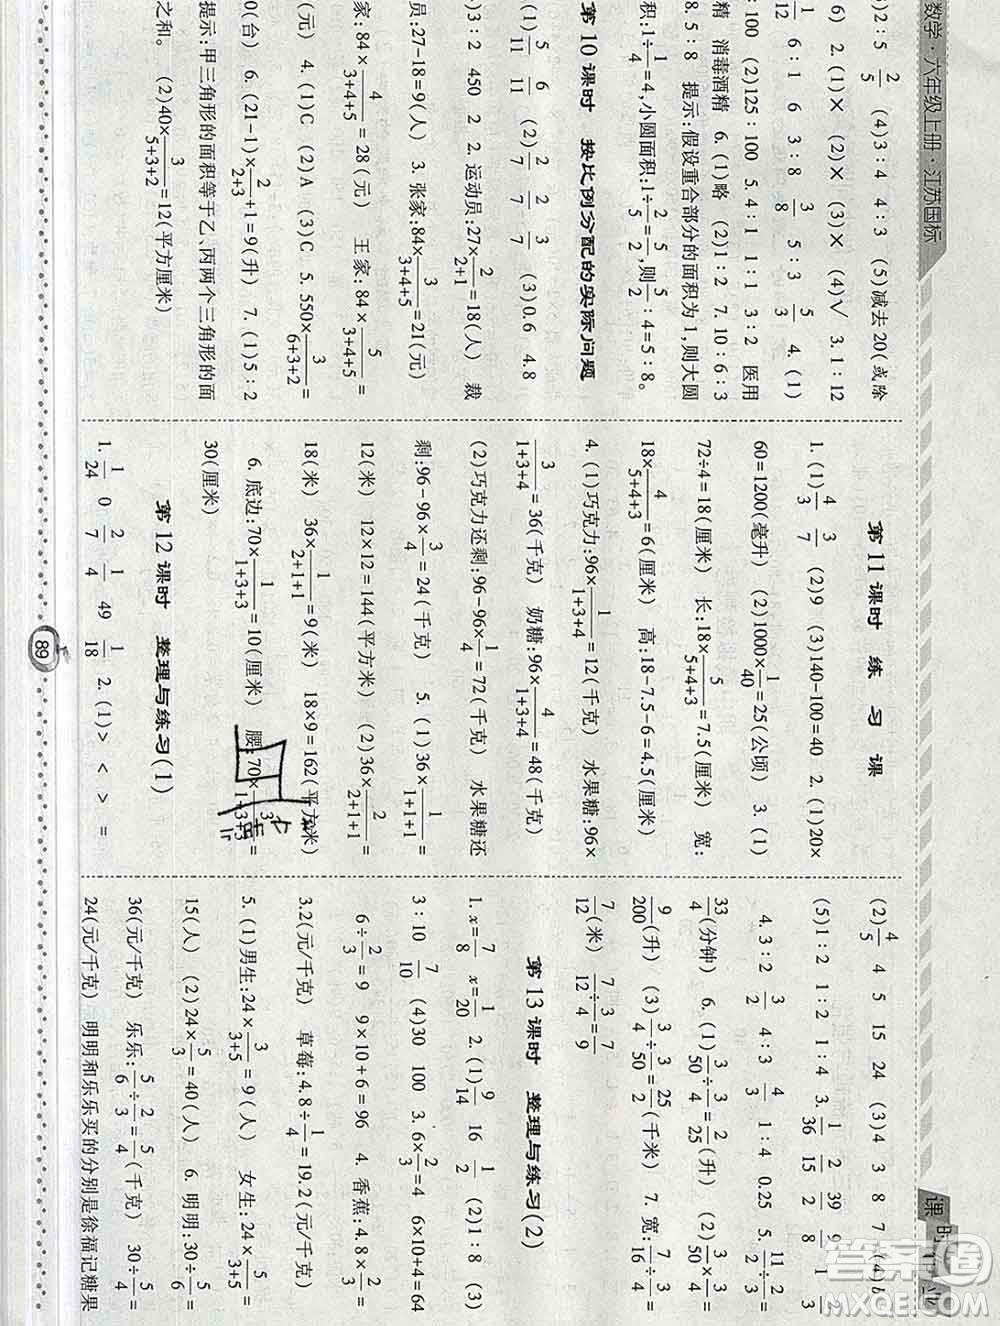 数学·六年级上册·江苏国标
课时作业
2∶5 2/5 (4)3∶4 4∶3 (5)减去20(或除
6) 2.(1)× (2)× (3)× (4)√ 3.1∶12
1/12 6∶1 6 3∶8 3/8 5∶3 5/3 4.(1)
∶100 (2)125∶100 5.4∶1 1∶1 3∶2 医用
消毒酒精 6.(1)略 (2)1∶2 7.10∶6∶3
8.5∶8 提示:假设重合部分的面积为1,则大圆
积:1÷1/4=4,小圆面积:1÷2/5=5/2,则5/2∶4=5∶8。
第10课时 按比例分配的实际问题
(1)5/11 6/11 (2)2/7 2/7 3/7 (3)0.6 4.8
3∶2 450 2.运动员:27×2/(2+1)=18(人) 裁
员:27-18=9(人) 3.张家:84×3/(3+4+5)=21(元)
家:84×4/(3+4+5)=28(元) 王家:84×5/(3+4+5)=
(元) 4.(1)C (2)A (3)C 5.550×3/(6+3+2)=
0(台) 6.(21-1)×2/(2+3)+1=9(升) 7.(1)5∶2
提示:甲三角形的面积等于乙、丙两个三角形的面
之和。 (2)40×3/(5+3+2)=12(平方厘米)
第11课时 练习课
1.(1)4/3 3/7 (2)9 (3)140-100=40 2.(1)20×
60=1200(毫升) (2)1000×1/40=25(公顷) 3.(1)
72÷4=18(厘米) 长:18×5/(5+4+3)=7.5(厘米) 宽:
18×4/(5+4+3)=6(厘米) 高:18-7.5-6=4.5(厘米)
4.(1)巧克力:96×1/(1+3+4)=12(千克) 水果糖:96×
3/(1+3+4)=36(千克) 奶糖:96×4/(1+3+4)=48(千克)
(2)巧克力还剩:96-96×1/4=72(千克) 水果糖还
剩:96-96×3/4=24(千克) 5.(1)36×1/(1+1+1)=
12(米) 12×12=144(平方米) (2)36×2/(2+1+1)=
18(米) 36×1/(2+1+1)=9(米) 18×9=162(平方米)
6.底边:70×1/(1+3+3)=10(厘米) 腰:70×3/(1+3+3)=
30(厘米)
第12课时 整理与练习(1)
1.1/24 0 2/7 1/4 49 1/18 2.(1)> < > =
(2)4/5 4 5 15 24 (3)4 3 8 7 (4)b
(5)1∶2 1∶2 1∶4 3.1/36 2/15 39/2 9/8 1 2/3
4.3∶2 3/2 4∶3 4/3 1∶4 0.25 5.11/12÷1/3=
33/4(分钟) 6.(1)3/50÷3/4=2/25(升) (2)3/50×3/4=
9/200(升) (3)3/4÷3/50=25/2(千米) 7.宽:7/16÷3/4=
7/12(米) 7/12÷3/4=7/9
第13课时 整理与练习(2)
1.x=7/8 x=1/20 2.(1)9/14 16 1/2 (2)1∶8 (3)
3∶10 7/10 (4)30 100 3.6×2/3=4 6×10+4=64
6÷2/3=9 9×10+6=96 4.香蕉:4.8×2/3=
3.2(元/千克) 草莓:4.8÷1/4=19.2(元/千克)
5.(1)男生:24×3/(3+5)=9(人) 女生:24×5/(3+5)=
15(人) (2)24×5/3=40(人) 6.明明:30÷5/6=
36(元/千克) 乐乐:5/6÷2/3=5/4(千克) 30÷5/4=
24(元/千克) 明明和乐乐买的分别是徐福记糖果
89
答案圈
MXQE.COM